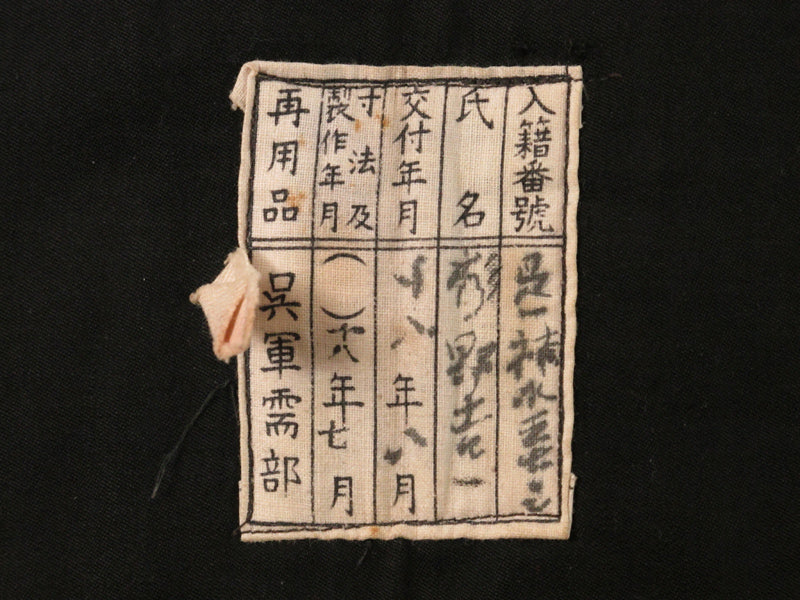 入籍番號
氏名
野
交付年月
十八年八月
寸法及
製作年月
( )十八年七月
再用品
呉軍需部